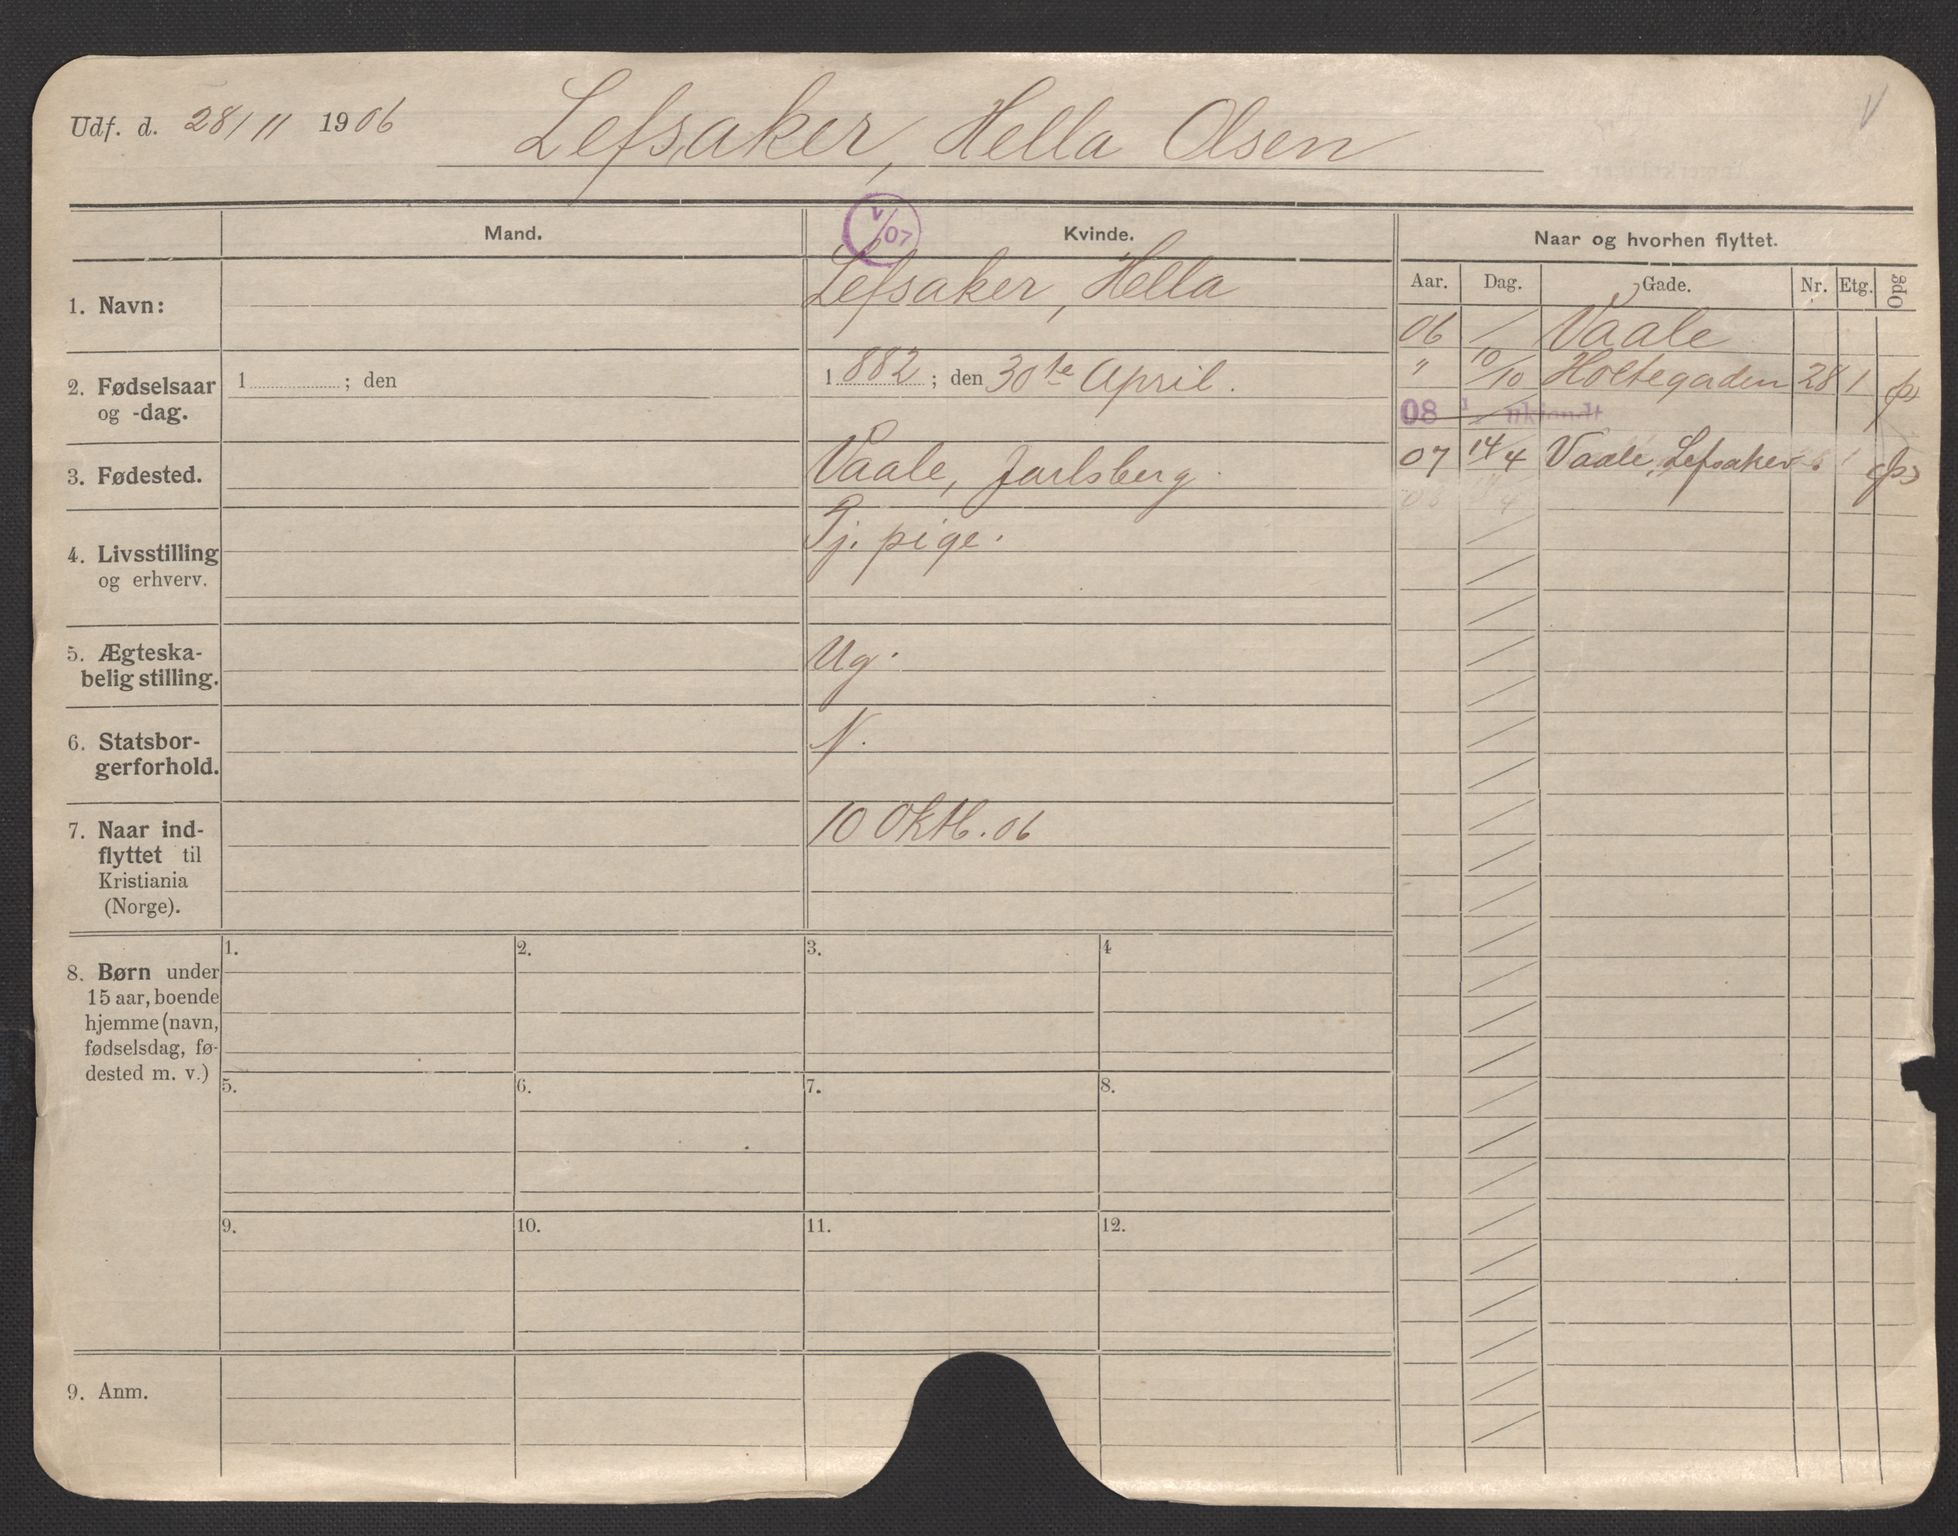 Udf. d. 28/11 1906 Lefsaker, Hella Olsen
Mand. Kvinde. Naar og hvorhen flyttet.
Aar. Dag. Gade. Nr. Etg. Opg
1/07
1. Navn: Lefsaker, Hella
06 Vaale
" 10/10 Holtegaden 28 1
2. Fødselsaar 1 ; den 1882 ; den 30te April.
og -dag.
08 1 ukjendt
3. Fødested. Vaale, Jarlsberg
07 14/4 Vaale, Lefsaker
4. Livsstilling Tj. pige.
og erhverv.
5. Ægteska-
belig stilling. Ug.
6. Statsbor-
gerforhold. N.
7. Naar ind- 10 Oktb. 06
flyttet til
Kristiania
(Norge).
1. 2. 3. 4
8. Børn under
15 aar, boende
hjemme (navn,
fødselsdag, fø-
dested m. v.)
5. 6. 7. 8.
9. 10. 11. 12.
9. Anm.